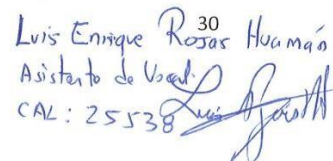 30
Luis Enrique Rojas Huamán
Asistente de Vocal
CAL: 25538